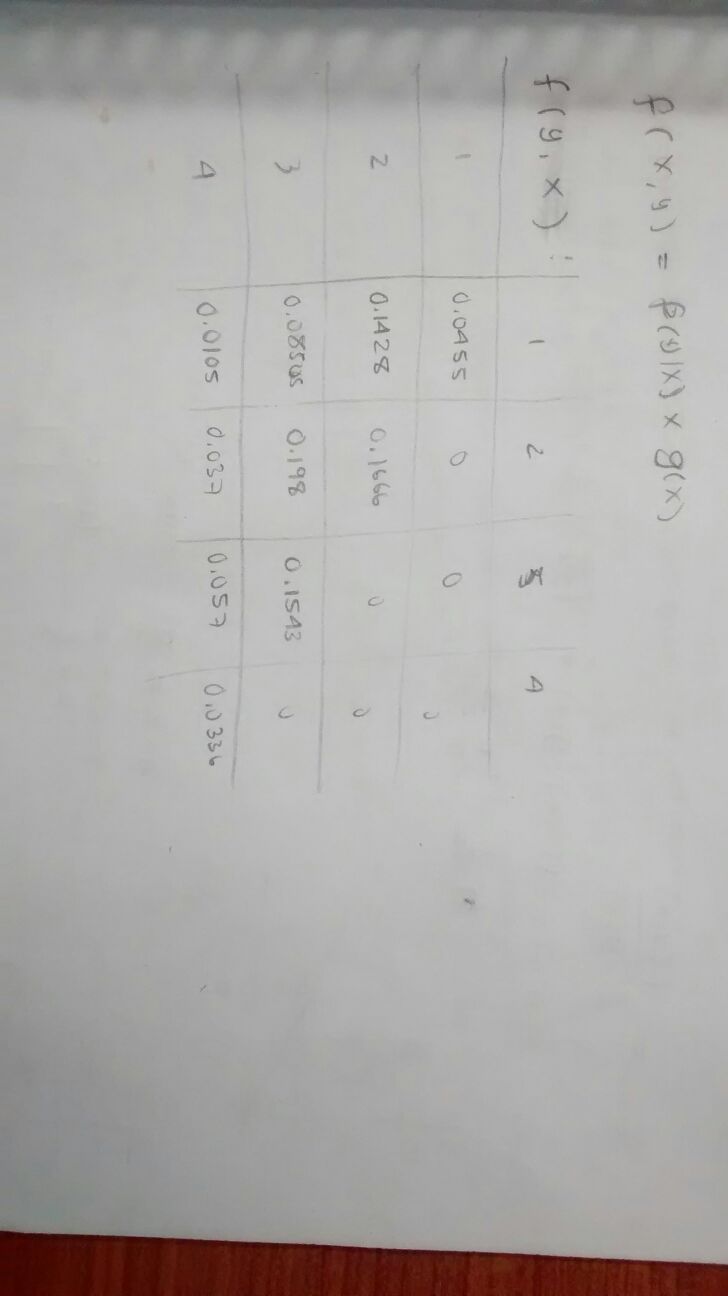 f(x,y) = f(y|x) x g(x)
f(y,x) : 1 2 3 4
1 0.0455 0 0 0
2 0.1428 0.1666 0 0
3 0.198 0.1543 0
4 0.0105 0.037 0.057 0.0336